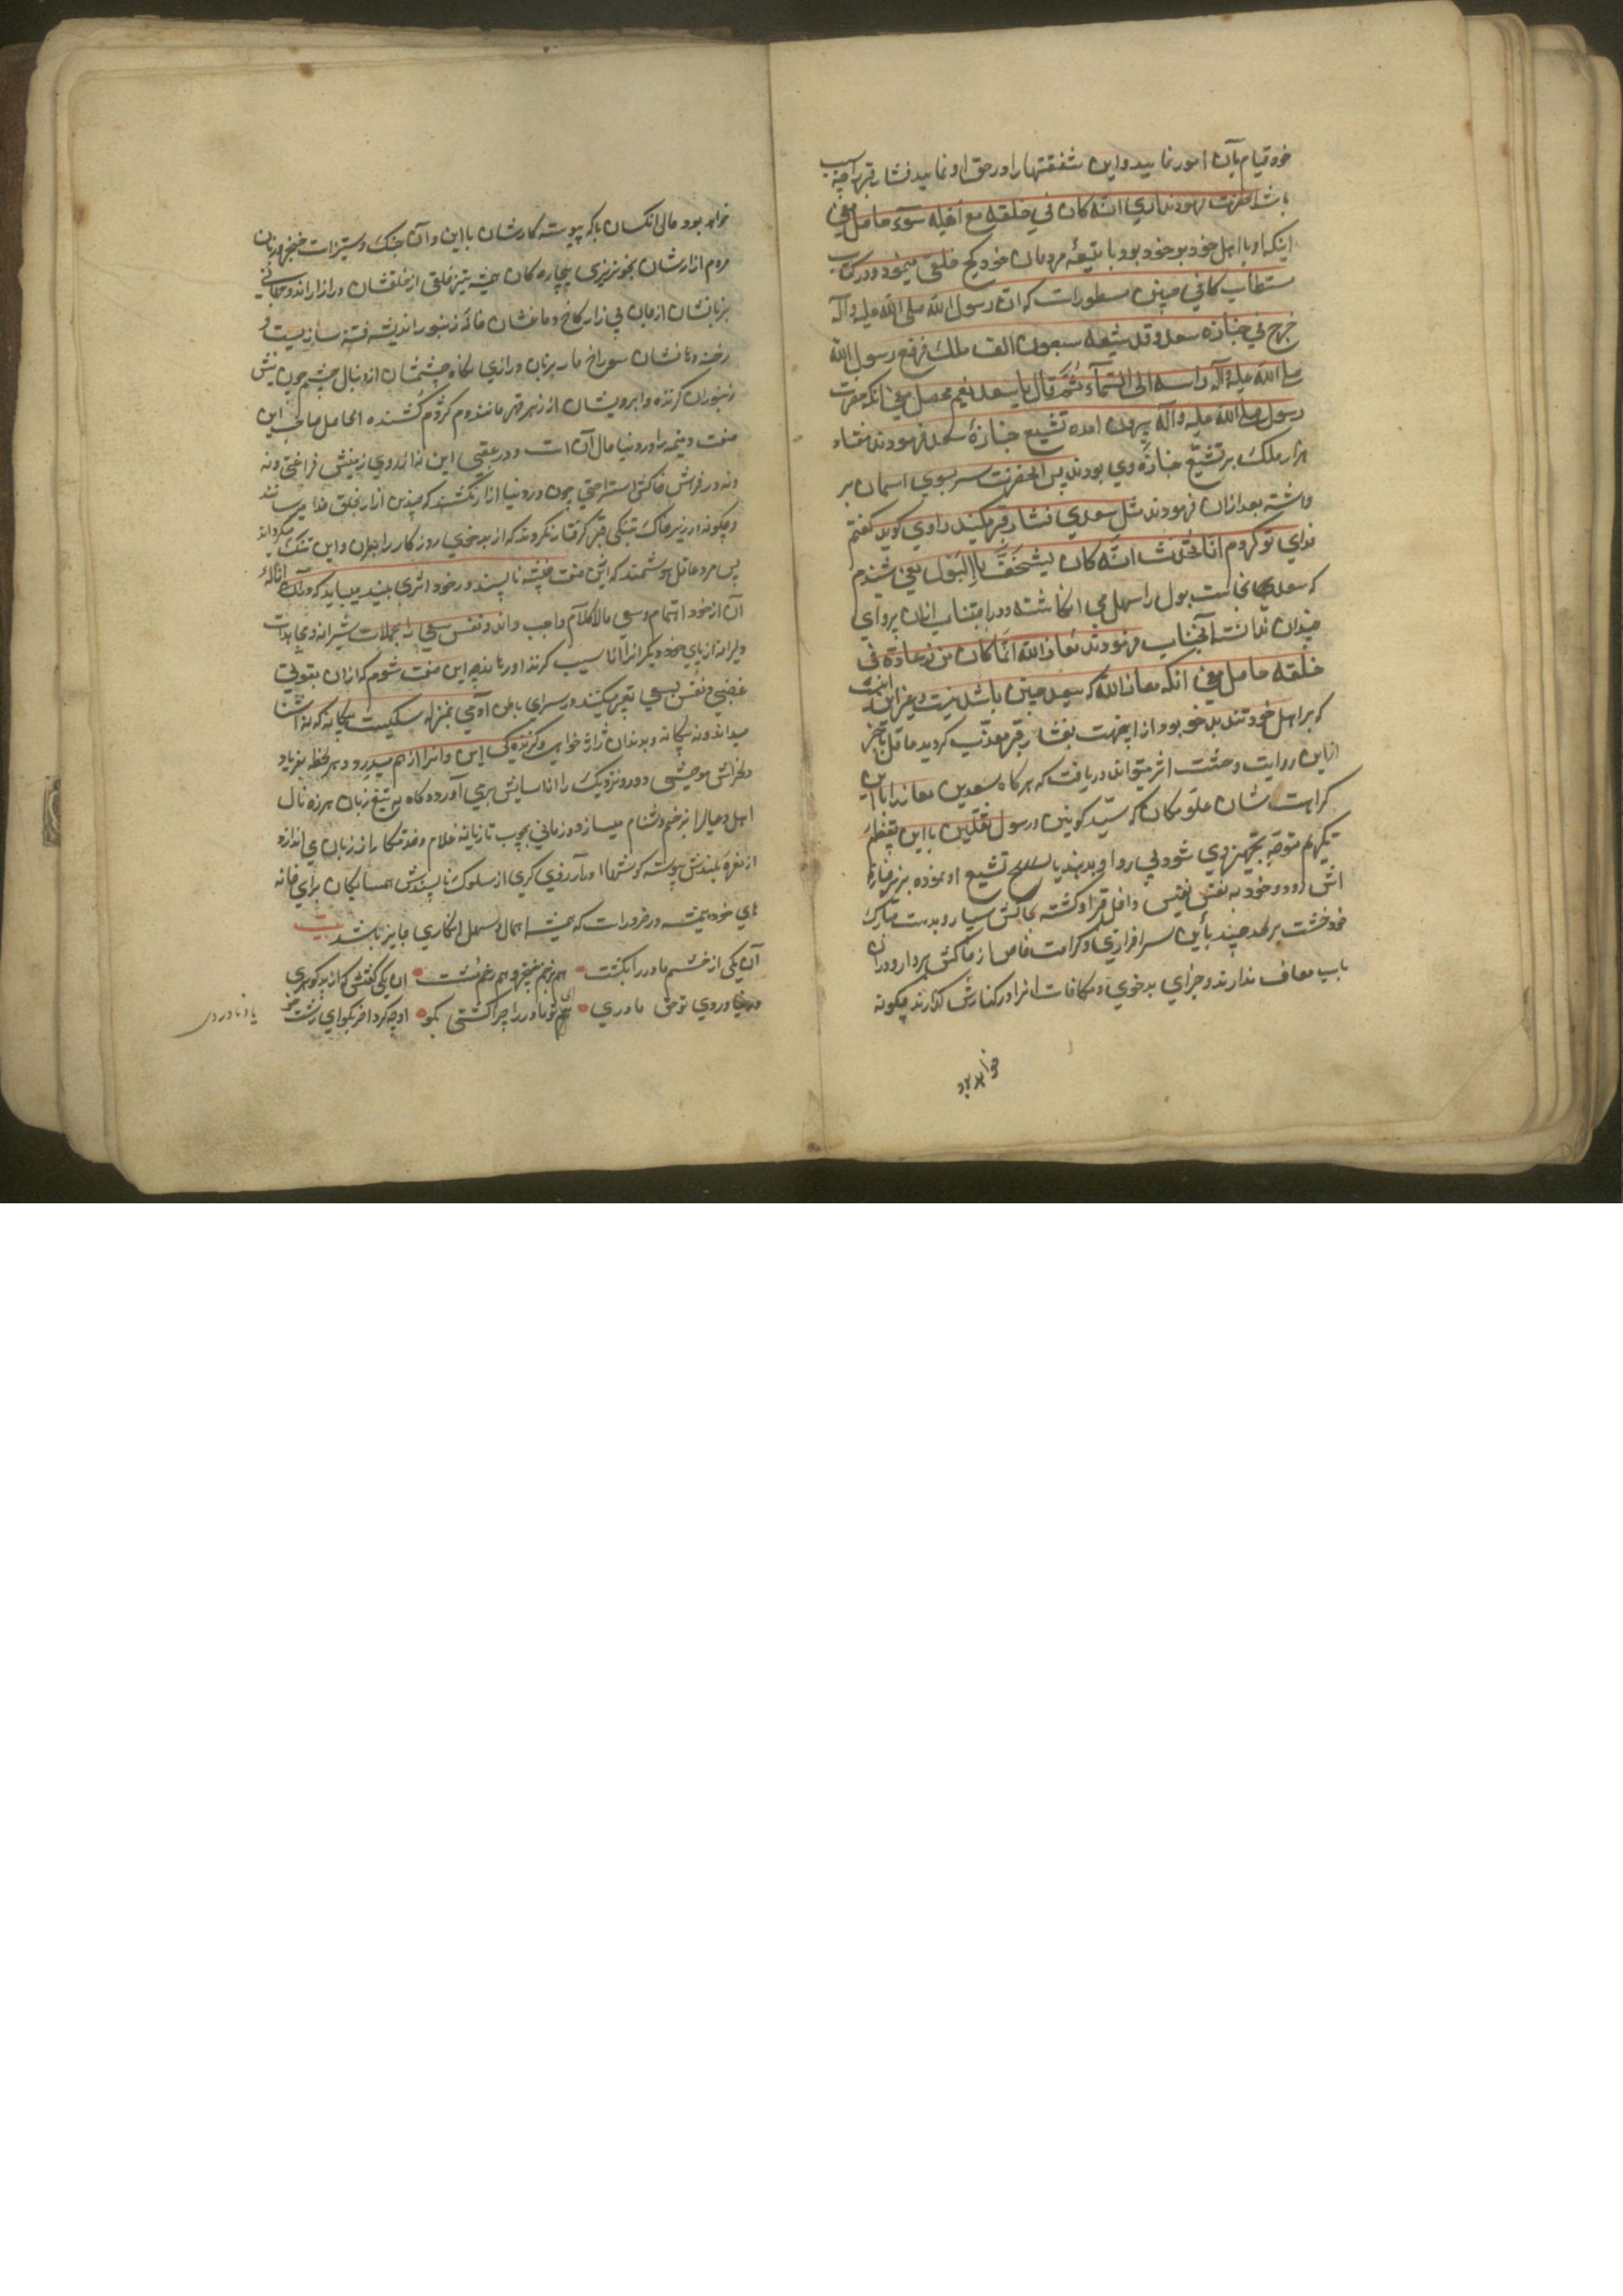 خود قیام بآن امور نمایید و این شفقتها را در حق او نمایید فشار قبر آخر سبب
باشد حضرت فرمودند اری انّه کان فی خلقه مع اهله سوء حاصل معنی
اینکه او با اهل خود بدخو بود با تتمه مردمان خود کج خلقی مینمود و در کتاب
مستطاب کافی چنین مسطور است که ان رسول الله صلی الله علیه و آله
خرج فی جنازه سعد و قد شیعه سبعون الف ملک فرفع رسول الله
صلی الله علیه و آله راسه الی السّمآء ثُمَّ قال یا سعد نعیم محصل معنی انکه حضرت
رسول صلی الله علیه و آله بیرون امده تشییع جنازهٔ سعد فرمودند هفتاد
هزار ملک بر تشییع جنازه وی بودند پس آنحضرت سر بسوی اسمان بر
داشته بعد ازان فرمودند مثل سعدی فشار قبر میکنید راوی کوید کفتم
فدای تو کردم انا نحدّث انّه کان یستخفّ بالبَول یعنی شنیدم
که سعد نجاست بول را سهل می انکاشته و در اجتناب ازان پروای
چندان نداشته آنجناب فرمودند معاذ الله انّما کان من زعارّة فی
خلقه حاصل معنی انکه معاذ الله که سعد چنین باشد نیست و بغیر این
که بر اهل خود تند بد خو بود از اینجهت بفشار قبر معذب کردید عاقل باتمیز
از این روایت وحشت اثر میتواند دریافت که هرکاه سعد بن معاذ را با ان
کرامت شان علو مکان که سیّد کونین و رسول ثقلین با این تعظیم
تکریم متوجه تجهیز وی شود بی ردا و تشییع او نموده بر سر مزار
اش رود و خود به نفس نفیس داخل قبر او کشته بخاکش سپارد و بدست مبارک
خود خشت بر لحد چیند باین سرافرازی و کرامت خاص از خاکش بردارد و دران
باب معاف ندارند و جزای بدخوی و مکافات انرا در کنارش کذارند چکونه
خواهد بود
خواهد بود حال انکسان با که پیوسته کارشان با این و آن جنک و ستیز است خنجر زبان
مردم ازارشان بخونریزی بیچاره کان همیشه تیز خلقی از خلقشان در ازارند و جانی
بزبانشان از جان بی زار کاخ دماغشان خانه زنبور اندیشه فتنه سازیست و
رخنه دهانشان سوراخ مار بزبان درازی نکاه چشمشان از دنبال چشم چون نیش
زنبوران کزنده و ابرویشان از زهر قهر مانند دم کژدم کشنده الحاصل صاحب این
صفت ذمیمه را در دنیا حال آن است و در عقبی این نه از روی زمینش فراغتی و نه
و نه در فراش خاکش استراحتی چون در دنیا ازار نکشند که چندین ازار بخلق خدا میرسانند
و چکونه در زیر خاک بتنکی قبر کرفتار نکردند که از بدخوی روزکار را بر جهان و این تنک میکرداند
پس مرد عاقل هوشمند که این صفت خبیثه ناپسند در خود اثری بیند میباید که در ازالهٔ
آن از خود اهتمام و سعی مالاکلام واجب داند و نفس سعی را بحملات شیرانه و مجاهدات
دلیرانه از پای خود دیکر انرا اسیب کزند او رهاند چه این صفت شوم که ازان بقوتی
غضبی و نفس سبعی تعبیر میکنند در سرای باطن آدمی بمنزله سکیست بیکانه که نه آشنا
میداند و نه بیکانه و بدندان ژاژ خوایی و کزنده کی این و انرا از هم میدرد و هر لحظه بفریاد
دلخراش موحشی دور و نزدیک را از اسایش بری آورده کاه به تیغ زبان هرزه نال
اهل و عیالرا زخم دشنام میسازد و زمانی بچوب تازیانه غلام و خدمتکار را از زبان می اندازد
از نعره بلندش پیوسته کوشها از سلوک ناپسندش همسایکان برای خانه
های خود همیشه در ضرورات که همیشه اهمال و سهل انکاری جایز باشد بیت
آن یکی از خشم مادر را بکشت • هم بزخم خنجر و هم زخم مشت • ان یکی کفتش که از بدکوهری
یاد ناوردی تو حق مادری • هی تو مادر را چرا کشتی بکو • او چه کرد اخر بکو ای زشت خو
یاد ناوردی